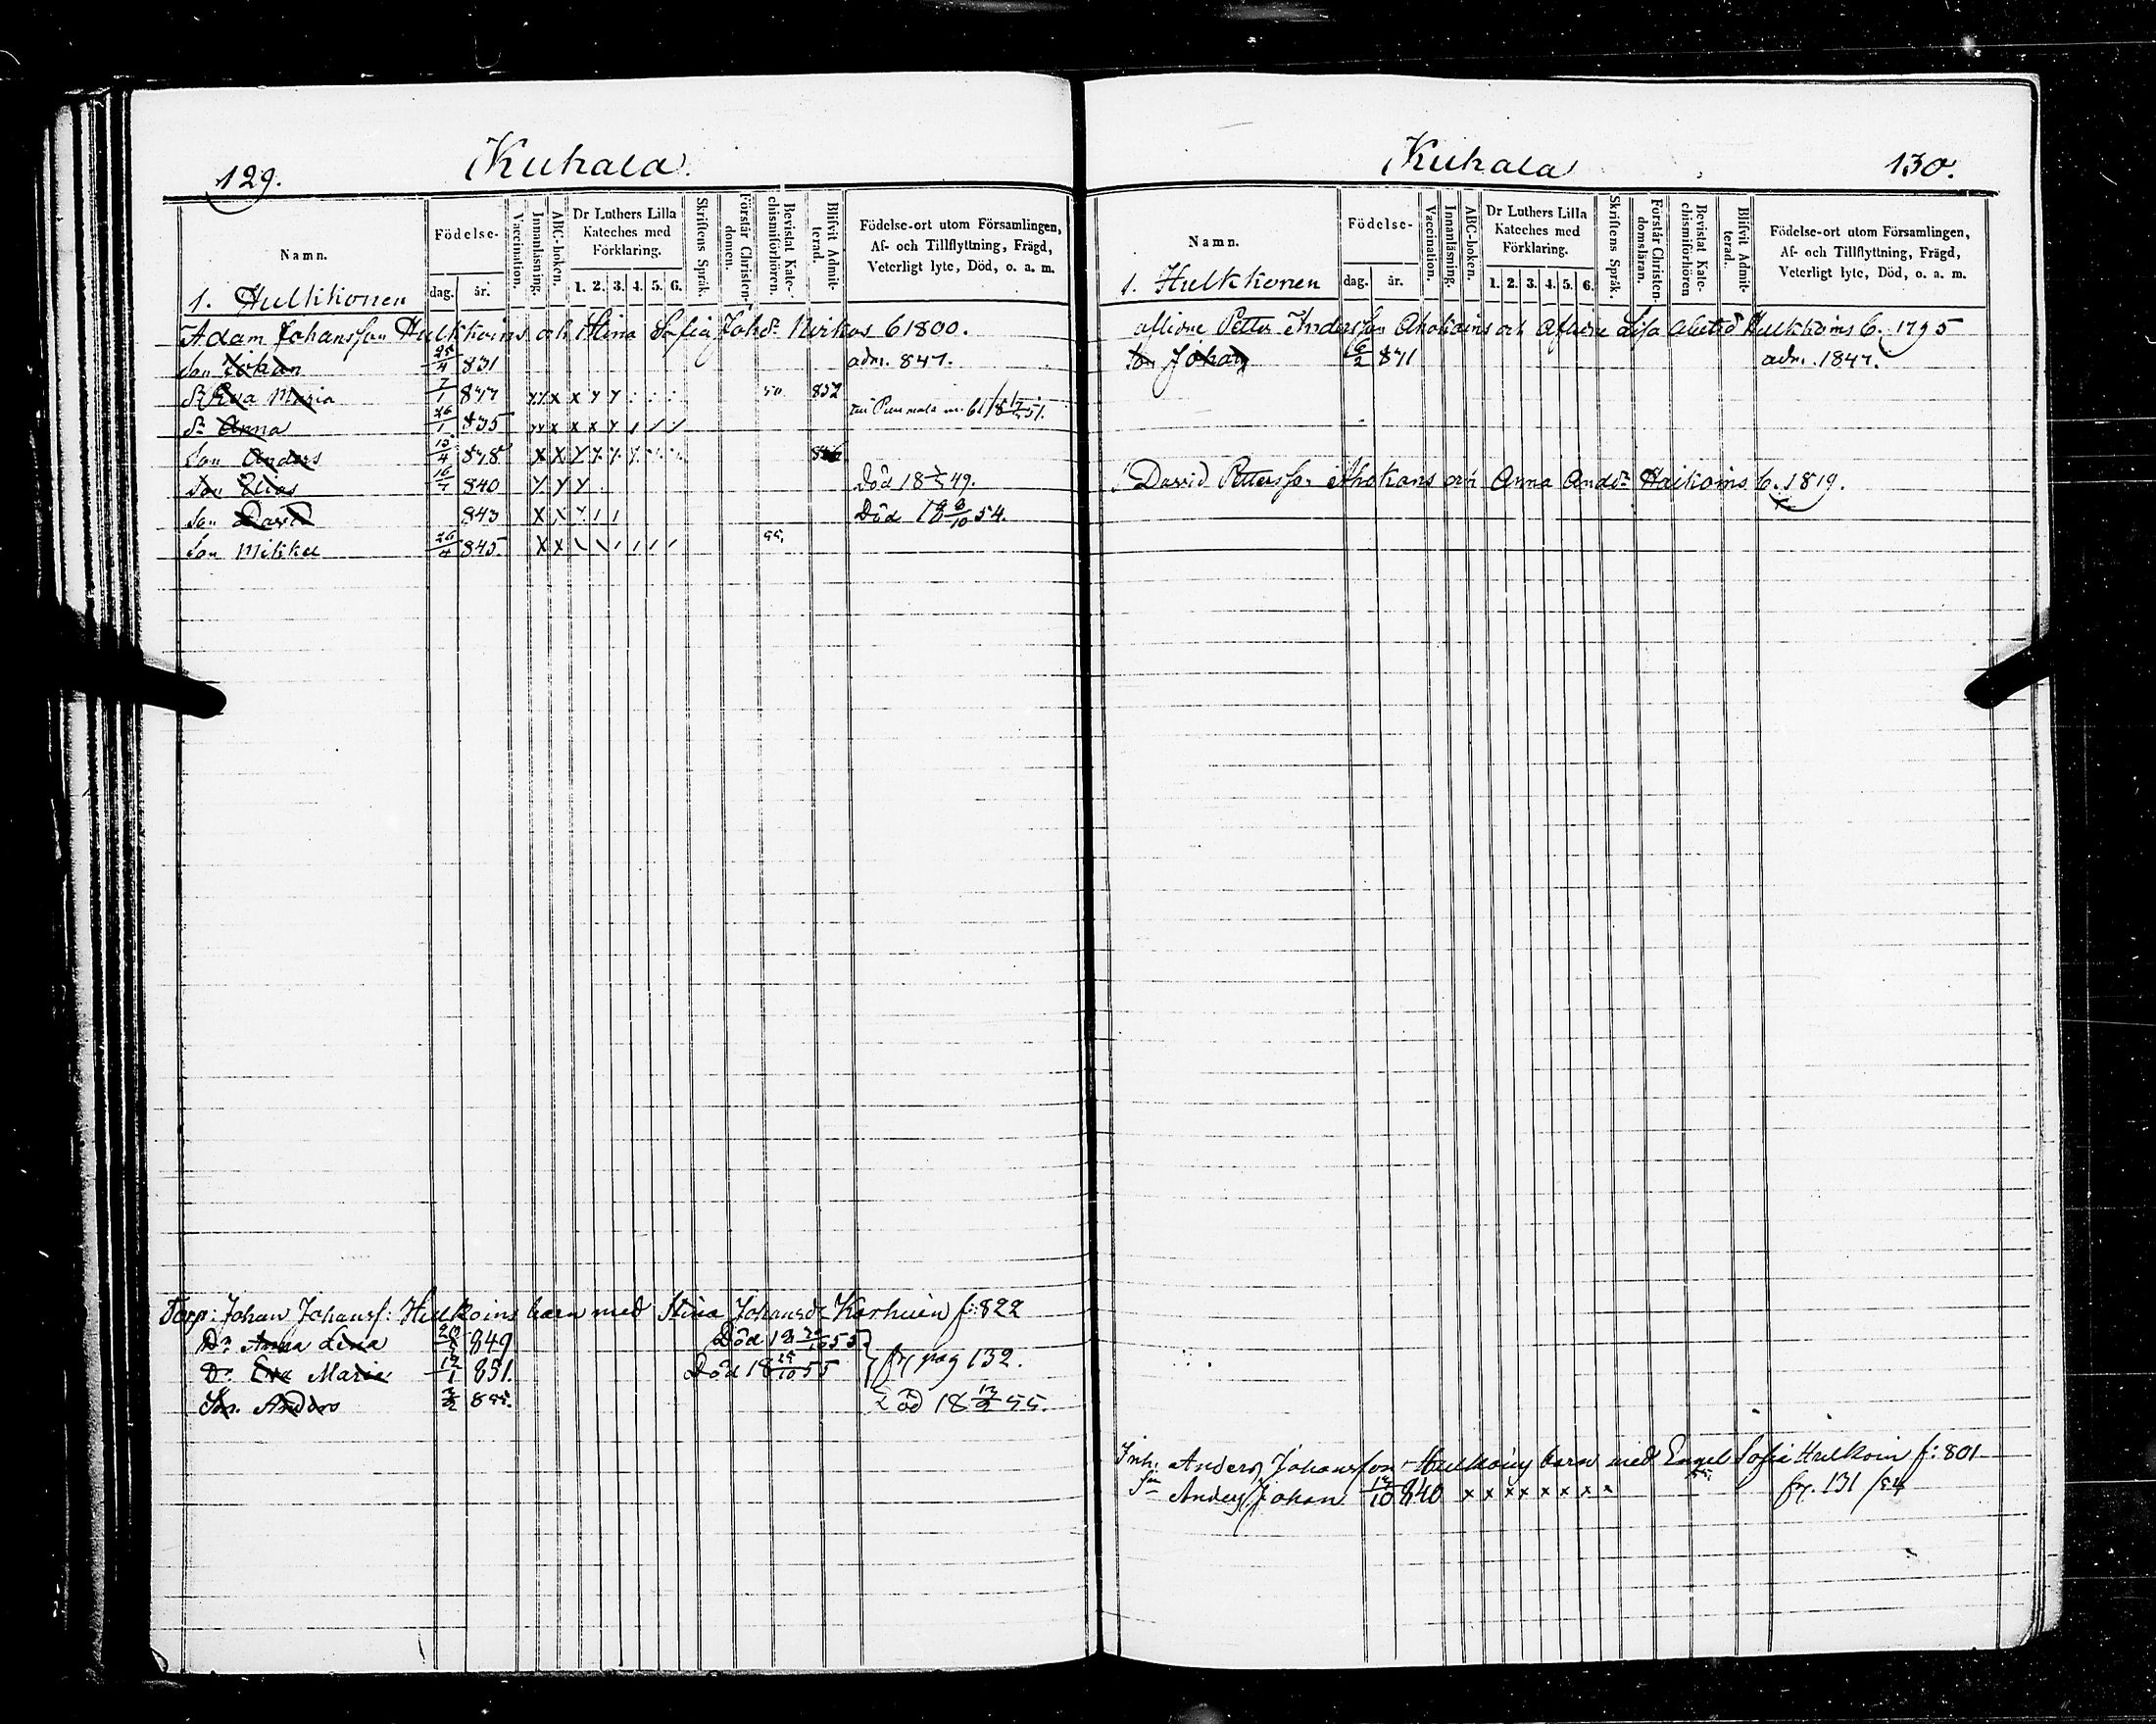 129.
Kuhala.
Namn.
Födelse-
dag. år.
Vaccination.
Innanläsning.
ABC-boken.
Dr Luthers Lilla Kateches med Förklaring.
1. 2. 3. 4. 5. 6.
Skriftens Språk.
Förstår Christendomen.
Bevistat Katechismiförhören.
Blifvit Admitterad.
Födelse-ort utom Församlingen, Af- och Tillflyttning, Frägd, Veterligt lyte, Död, o. a. m.
1. Hulkkonen
Adam Johansson Hulkkoins och Stina Sofia Johsdr 61800.
Son Johan 25/4 831 adm. 847.
Dr Eva Maria 7/1 8 x x y y 50. 852
Dr Anna 26/1 835 x x x y / / / 61/18 51.
Son Anders 15/4 838 X X y y y y
Son Elias 16/7 840 y y y Död 18 49.
Son David 843 x x y / / Död 18 6/10 54.
Son Mikkel 26/4 845. X X \ \ / / / / 55.
Torp: Johan Johanss: Hulkoins barn med Stina Johansdr Karhuin f:822
Dr Anna Lena 849 Död 18 55
Dr Eva Maria 12/1 851. Död 18 25/10 55 fr. pag 132.
Son. Anders 3/2 855. Död 18 13/2 55.
Kuhala
130.
Namn.
Födelse-
dag. år.
Vaccination.
Innanläsning.
ABC-boken.
Dr Luthers Lilla Kateches med Förklaring.
1. 2. 3. 4. 5. 6.
Skriftens Språk.
Förstår Christendomsläran.
Bevistat Katechismiförhören
Blifvit Admitterad.
Födelse-ort utom Församlingen, Af- och Tillflyttning, Frägd, Veterligt lyte, Död, o. a. m.
1. Hulkkonen
Aflidne Petter Andersson Ahokains och Aflidne Lisa Hulkkoins 6. 1795
Son Johan 6/2 831 adm. 1847.
David Pettersson Ahokans och Anna Andsdr Haikoins 6. 1819.
Inh. Anders Johansson Hulkoins barn med Engel Sofia Hulkoin f:801
Sn Anders Johan 13/10 840 x x x x x x x x fr. 131 /54